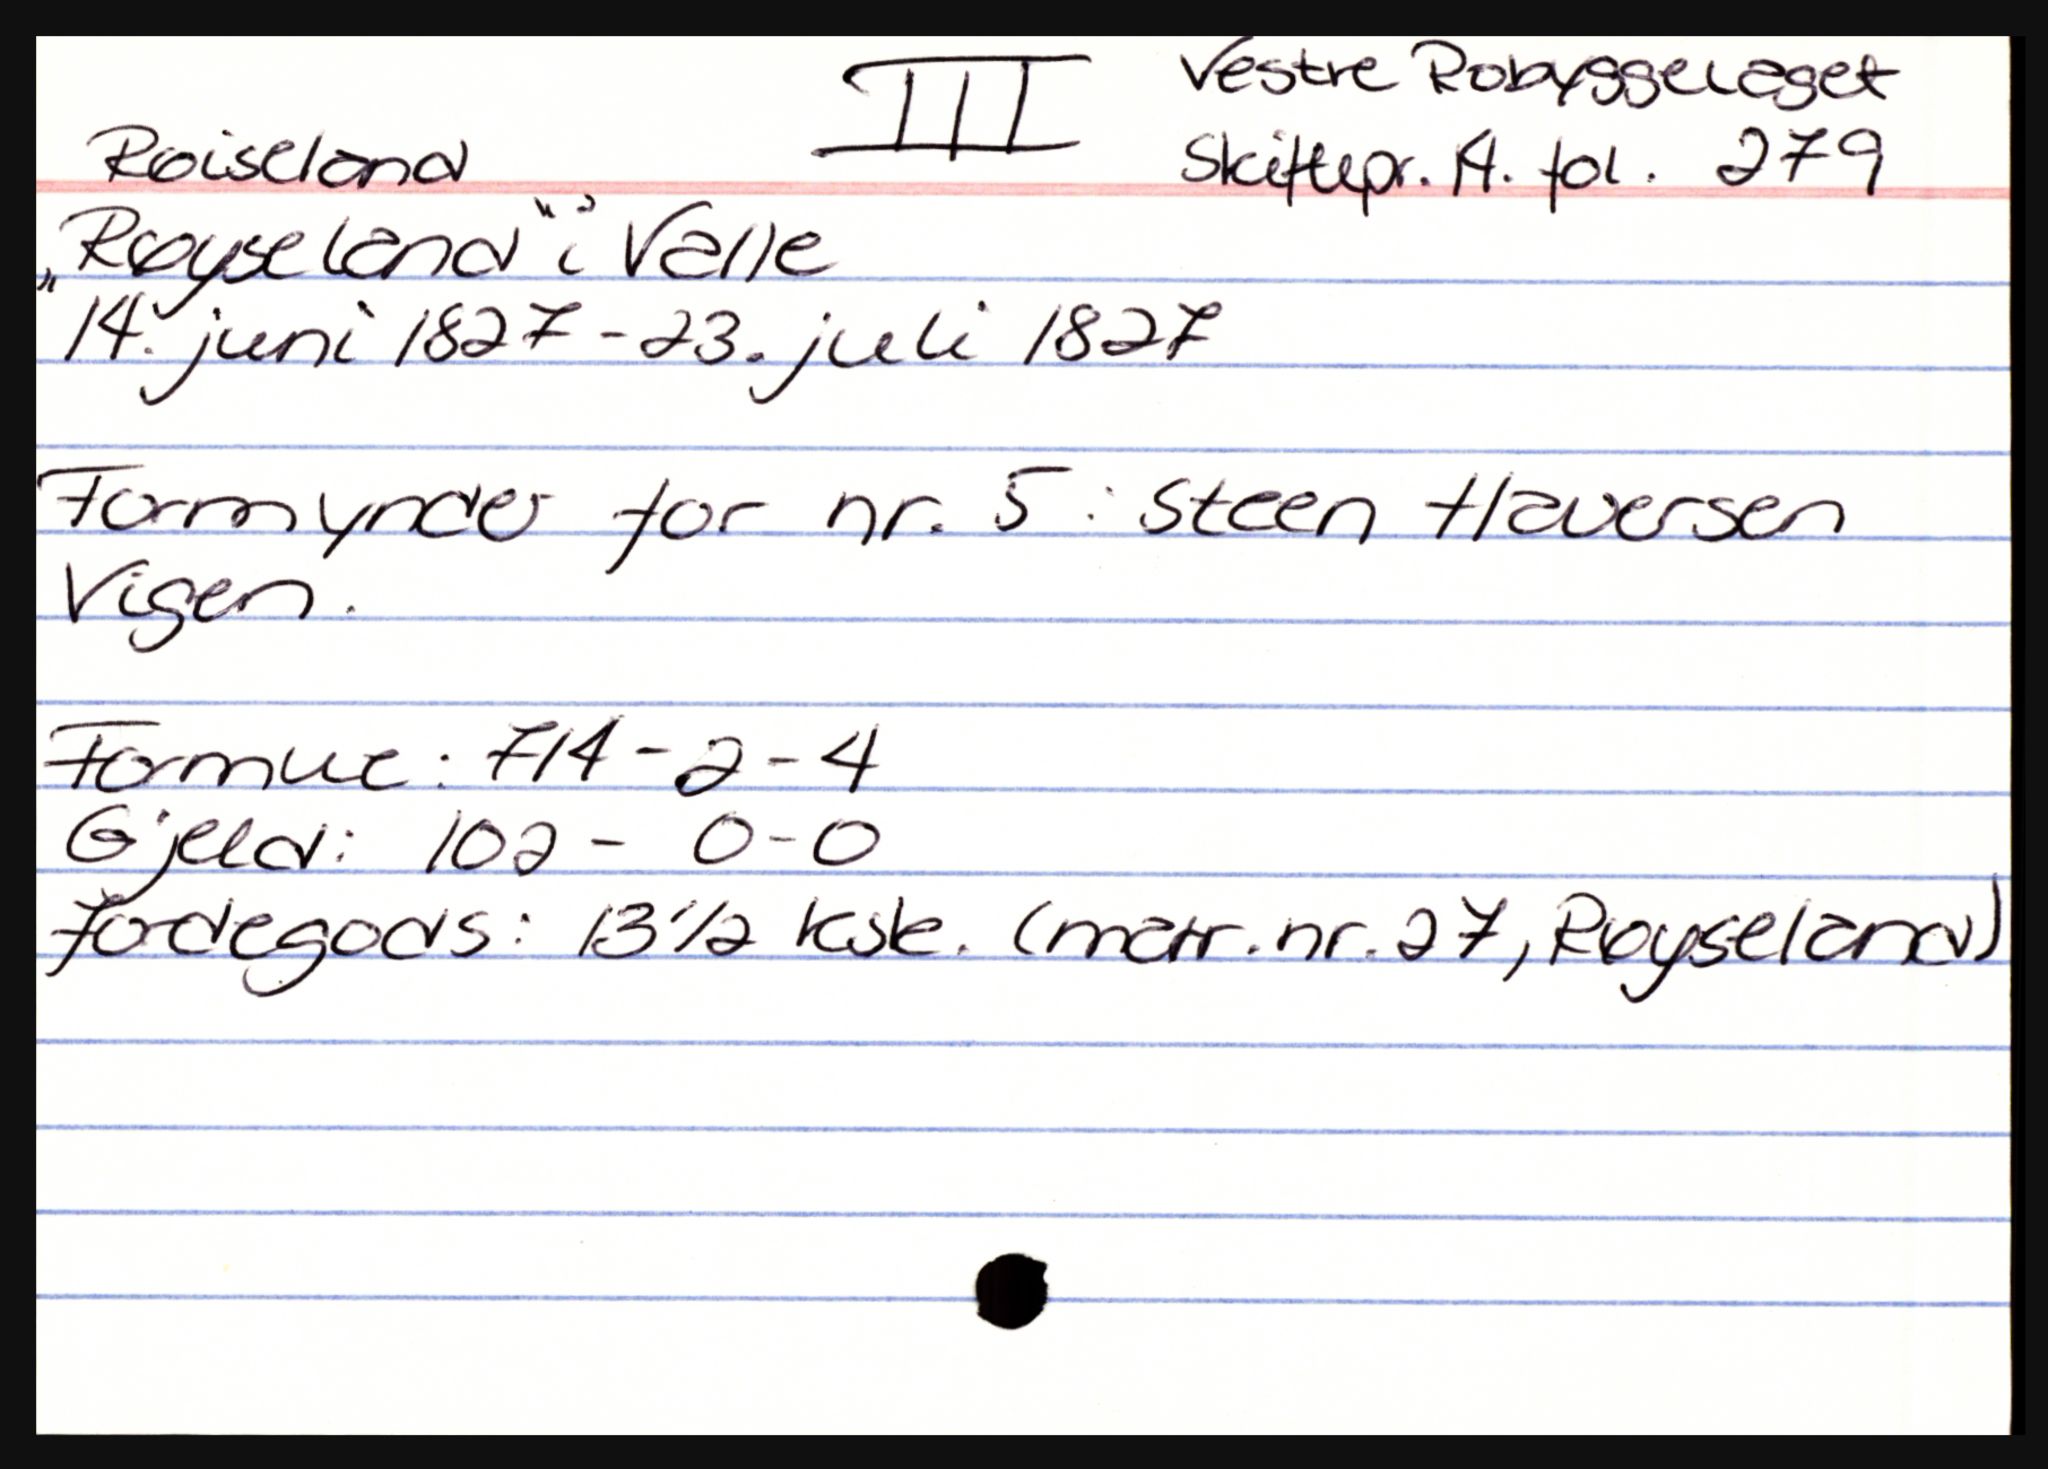 III
Vestre Robyggelaget
Røiseland
Skiftepr. 14. fol. 279
„Røyseland" i Valle
14. juni 1827 - 23. juli 1827
Formynder for nr. 5: Steen Haversen
Vigen.
Formue: 714 - 2 - 4
Gjeld: 102 - 0 - 0
Jordegods: 13 1/2 ksk. (matr.nr. 27, Røyseland)